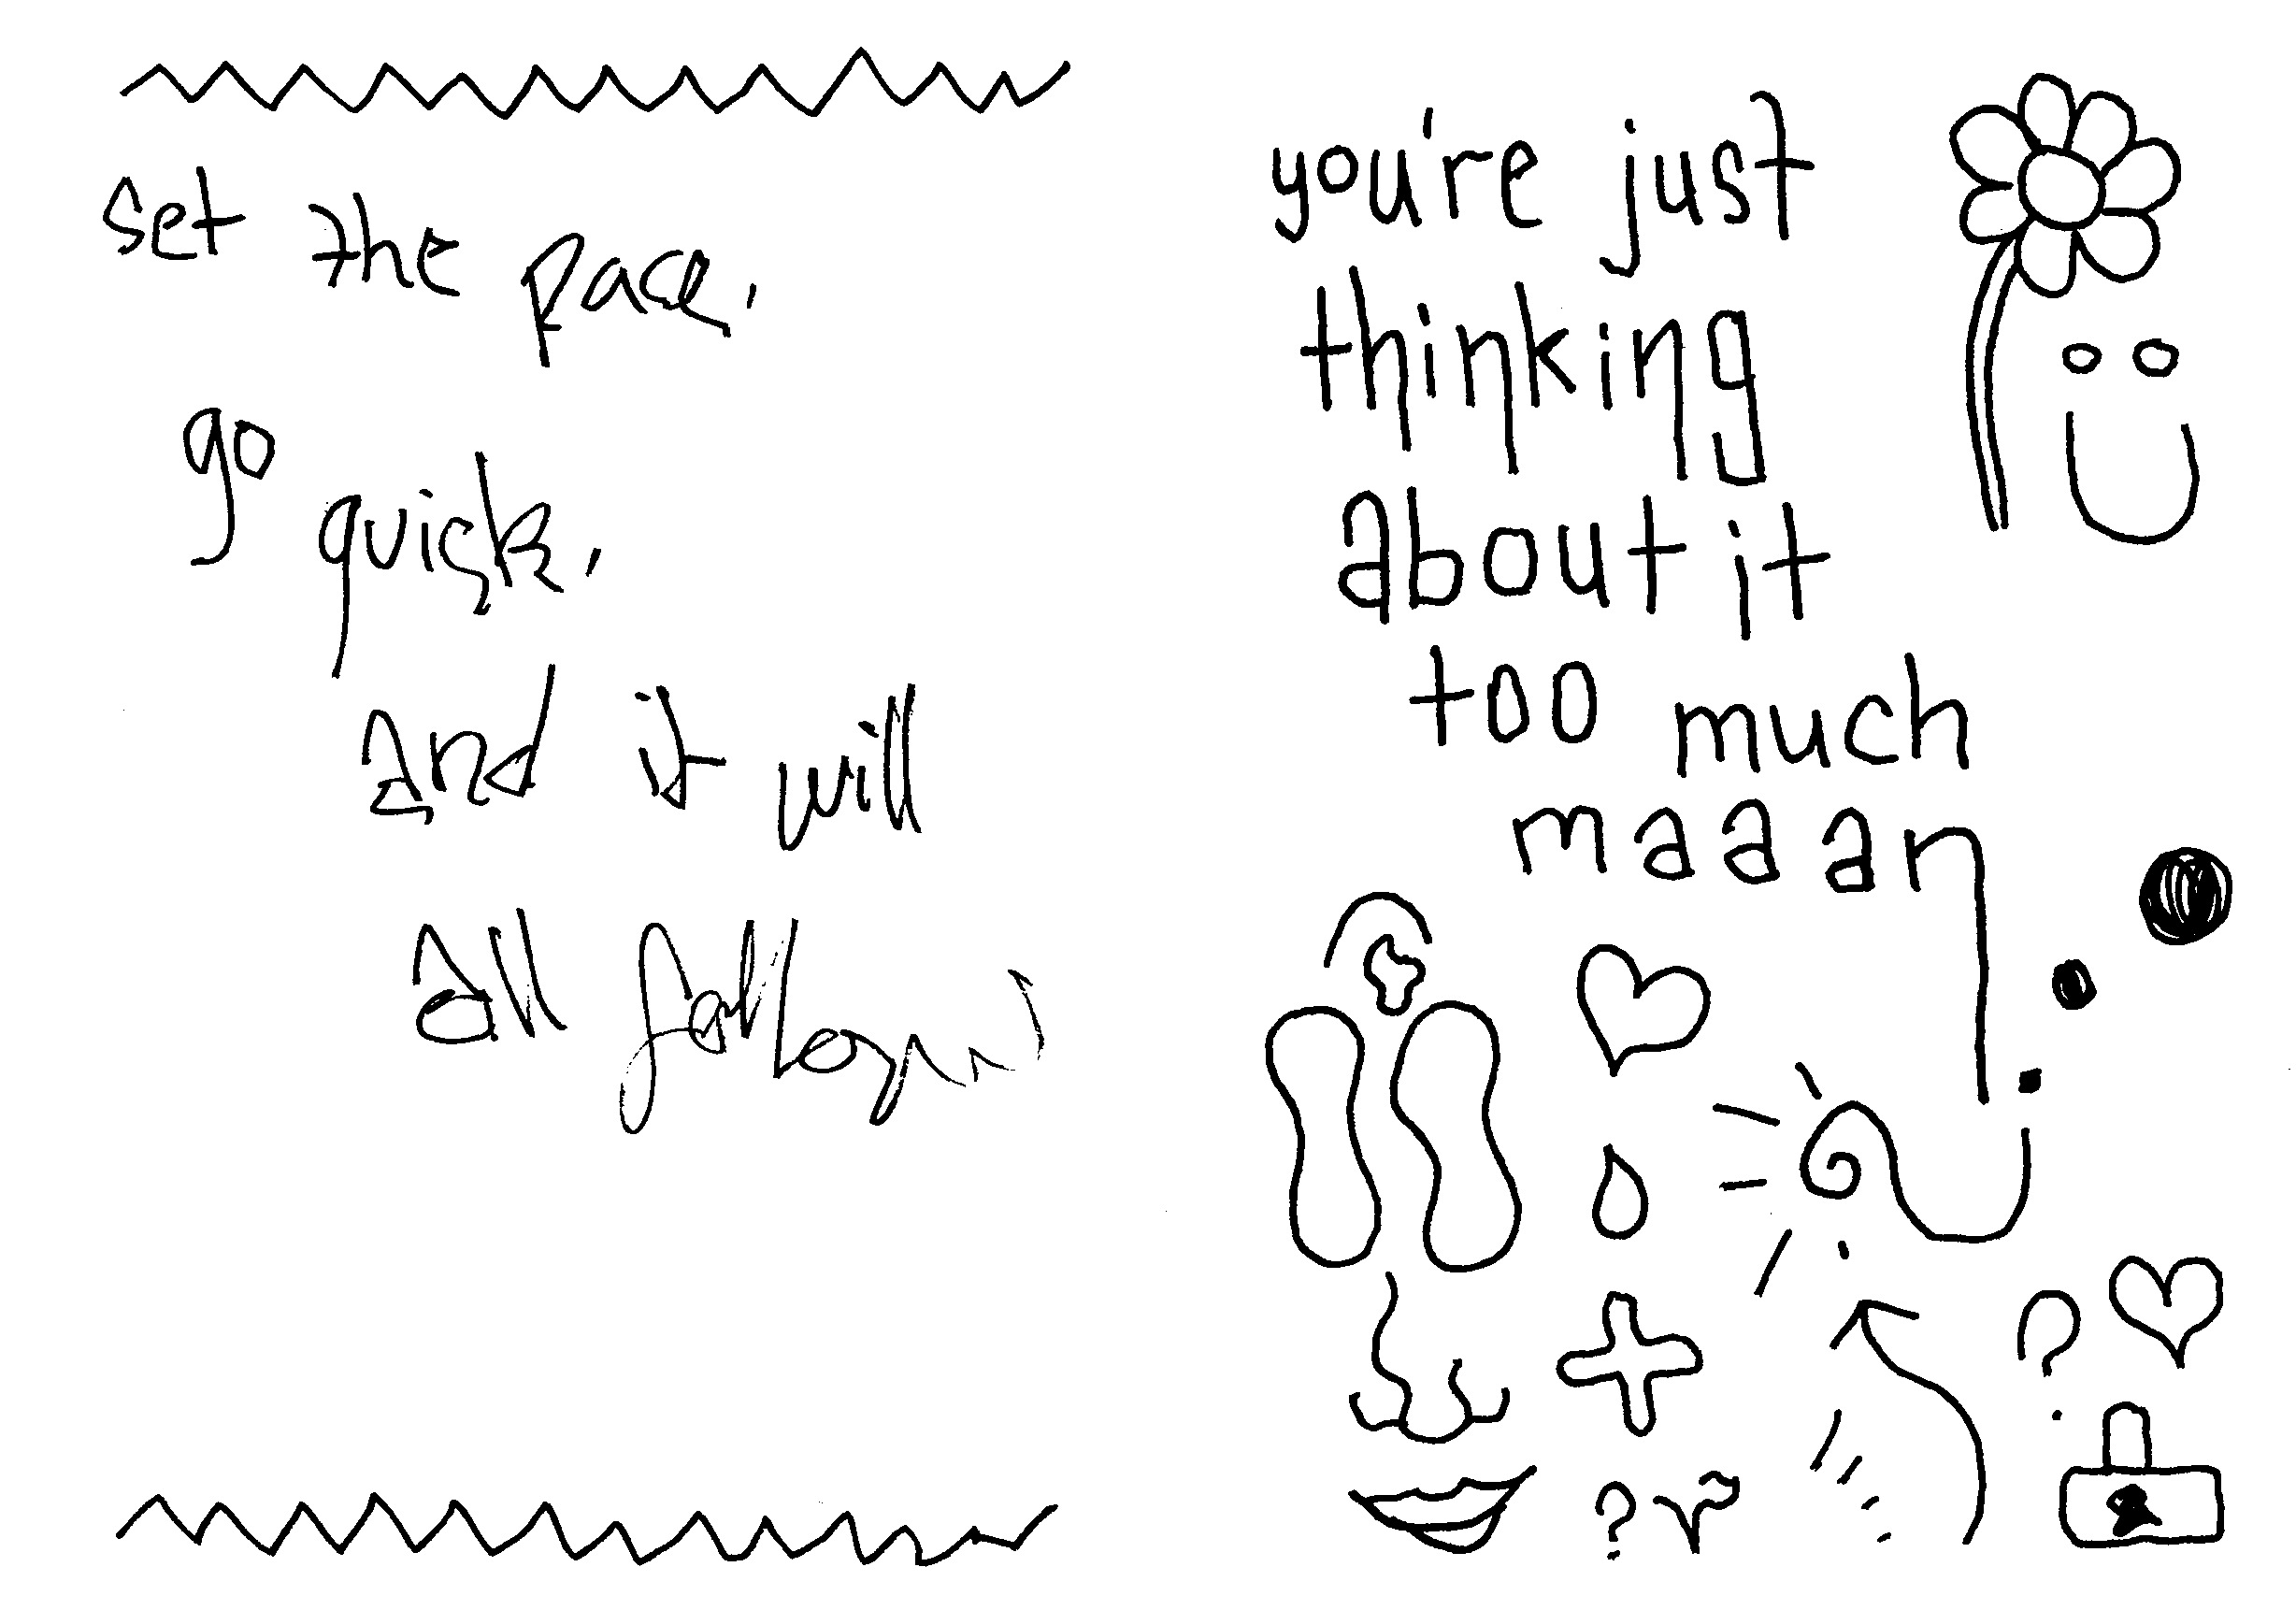 set the pace,
go quick,
and it will
all follow
you're just
thinking
about it
too much
maaan
?
?